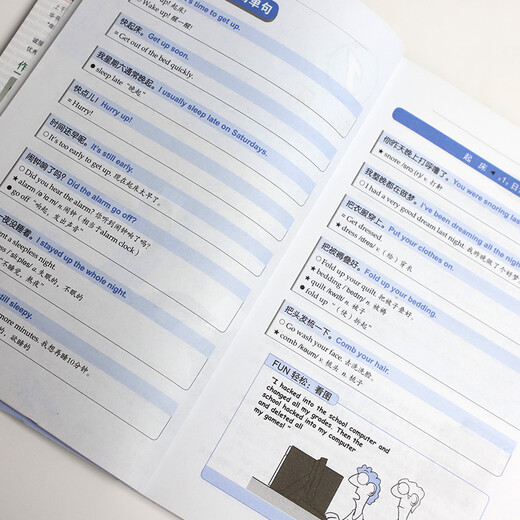 单句
It's time to get up.
Wake up! 醒一醒!
快起床。 Get up soon.
= Get out of the bed quickly.
我星期六通常晚起。 I usually sleep late on Saturdays.
● sleep late "晚起"
快点儿! Hurry up!
= Hurry!
时间还早呢。 It's still early.
○ It's too early to get up. 现在起床太早了。
闹钟响了吗? Did the alarm go off?
○ Did you hear the alarm? 你听到闹钟响了吗?
★ alarm n. 闹钟 (相当于alarm clock)
● go off "响起,发出声音"
夜没睡着。 I stayed up the whole night.
a sleepless night.
a. 失眠的,不眠的
"不睡觉,熬夜"
still sleepy.
more minutes. 我想再睡10分钟。
的,欲睡的
起 床
日
你昨天晚上打呼噜了。 You were snoring last
★ snore v. 打鼾
我整晚都在做梦。 I've been dreaming all the night
○ I had a very good dream last night. 我昨晚做了个好梦
把衣服穿上。 Put your clothes on.
= Get dressed.
★ dress v. (给) 穿衣
把被褥叠好。 Fold up your bedding.
○ Fold up your quilt. 把被子叠好。
★ bedding n. 被褥
★ quilt n. 被子
● fold up "(使) 折起"
把头发梳一下。 Comb your hair.
○ Go wash your face. 去洗洗脸。
★ comb v. 梳头 n. 梳子
FUN 轻松:看图
"I hacked into the school computer and
changed all my grades. Then the
school hacked into my computer
and deleted all
my games!"